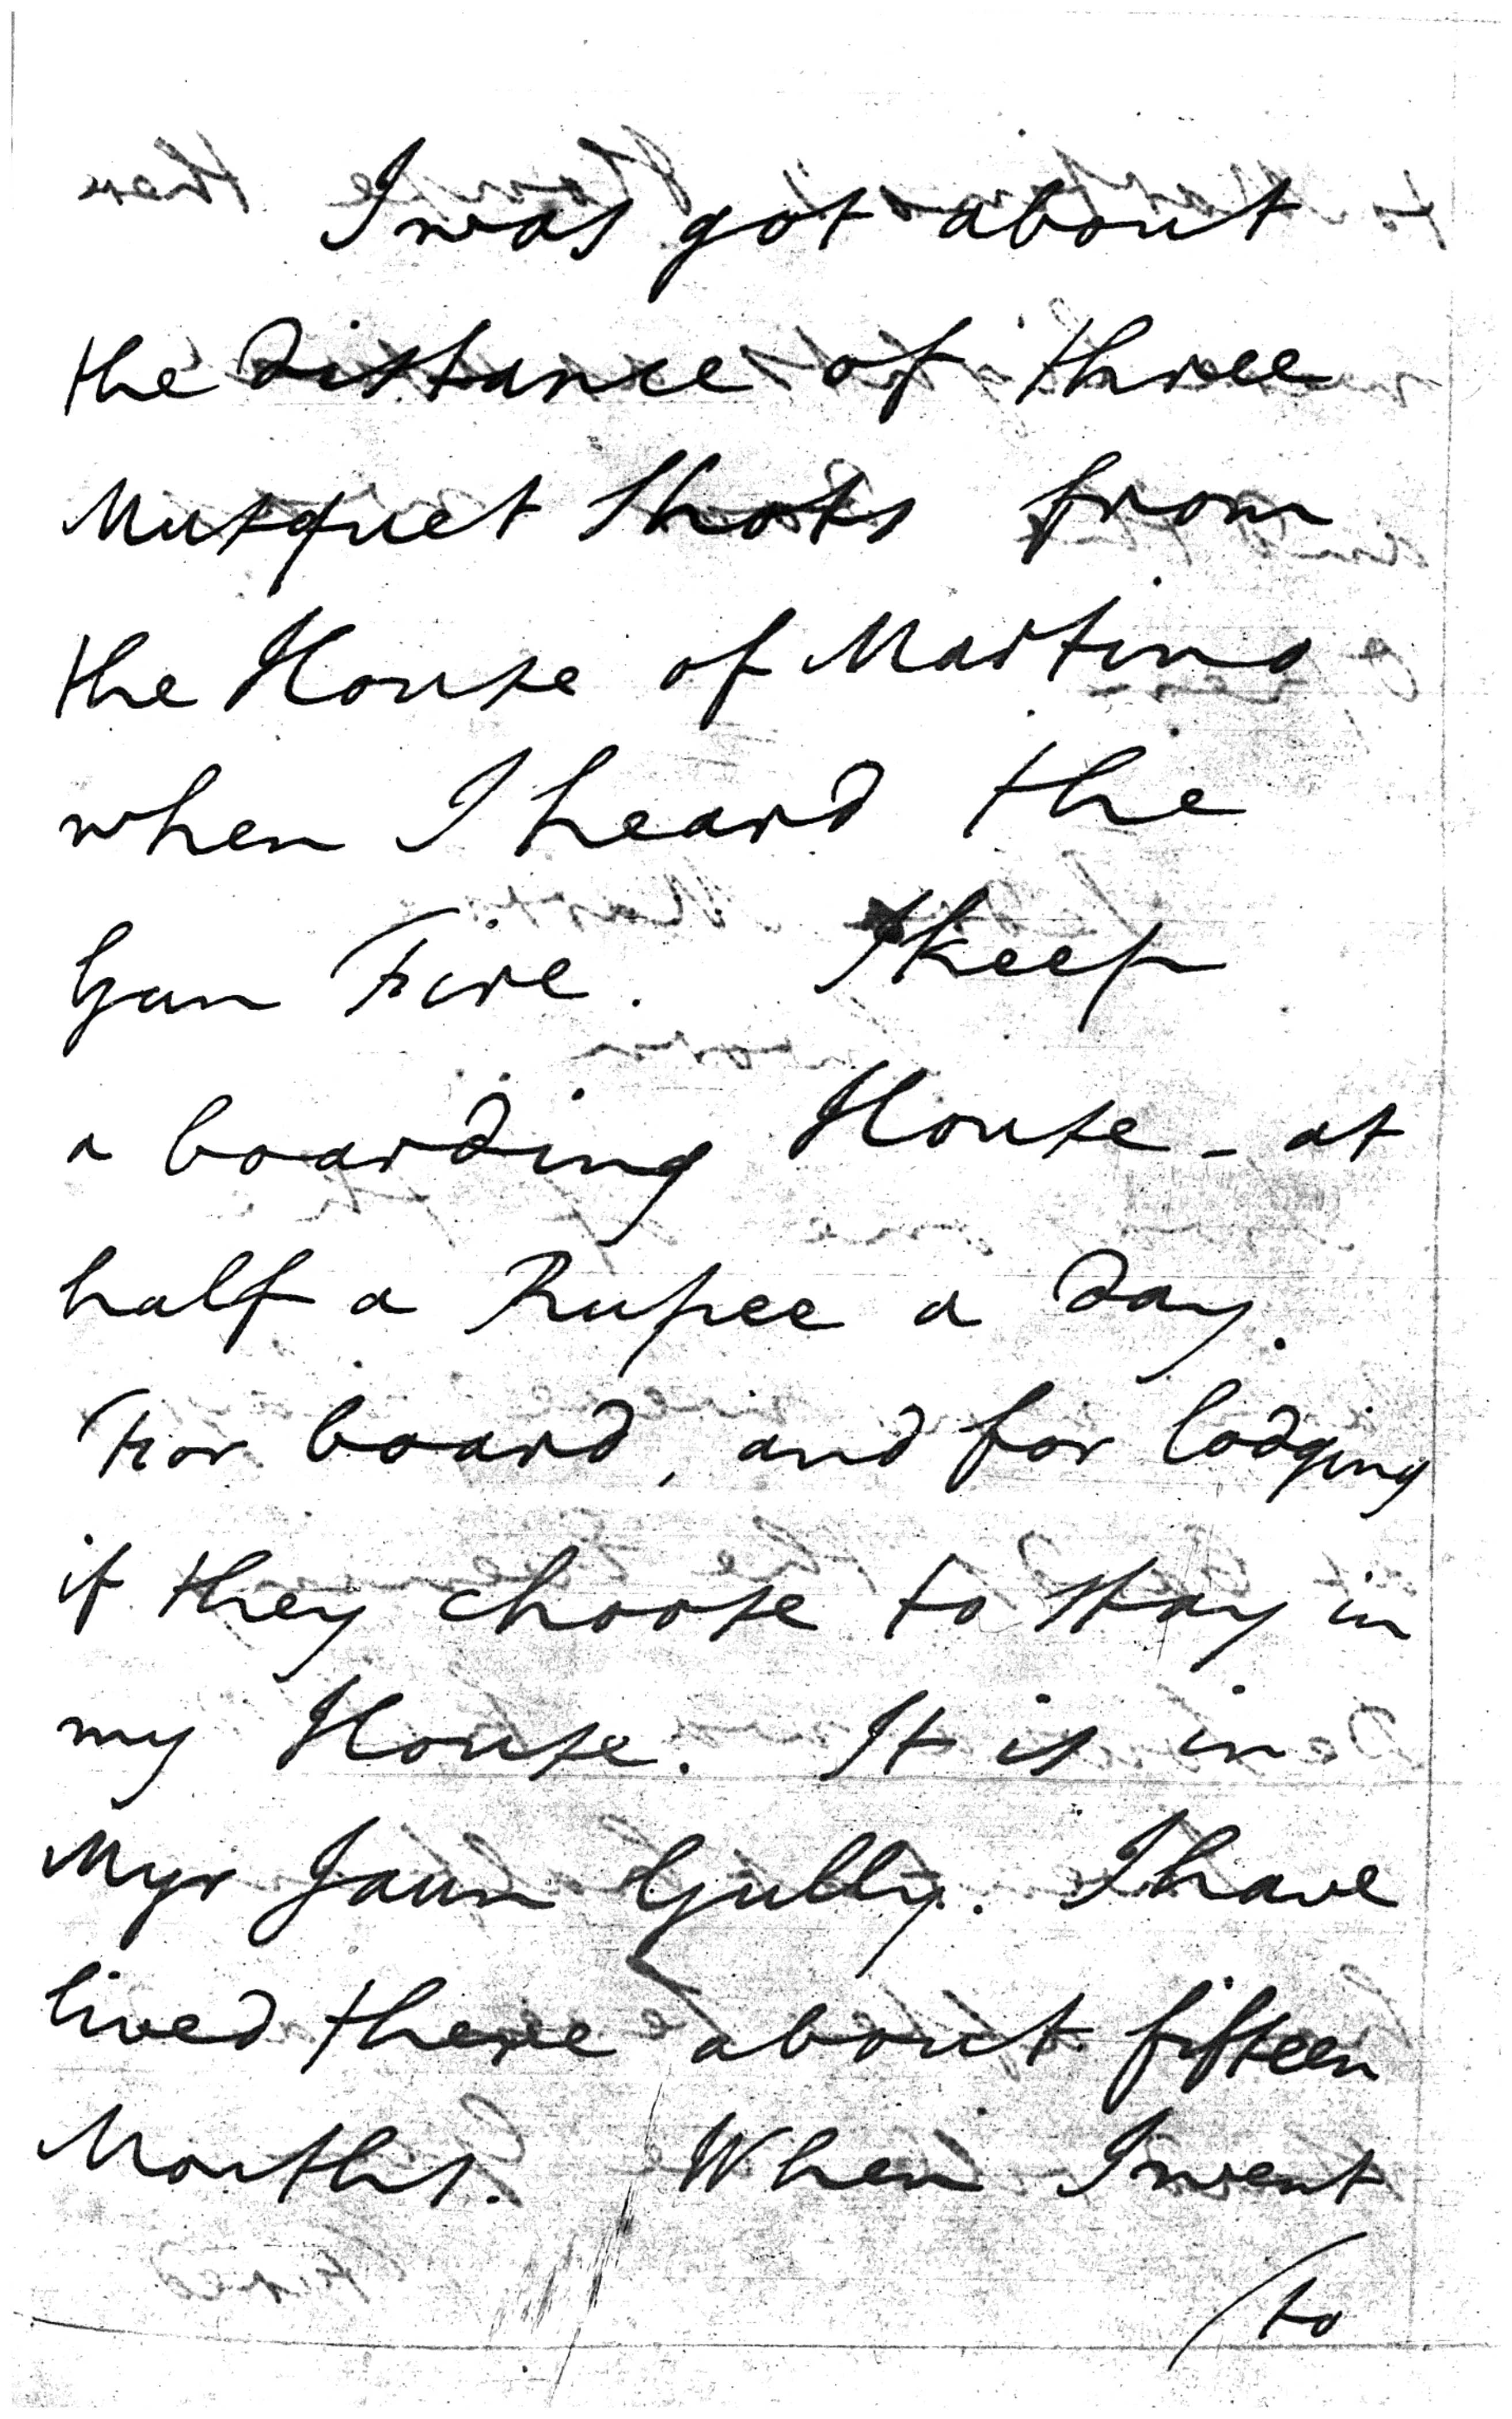 I was got about
the Distance of three
Musquet Shots from
the House of Martino
when I heard the
Gun Fire. I keep
a boarding House - at
half a Rupee a Day.
For board, and for lodging
if they choose to stay in
my House. It is in
Myr Jaun Gully. I have
lived there about fifteen
Months. When I went
/to